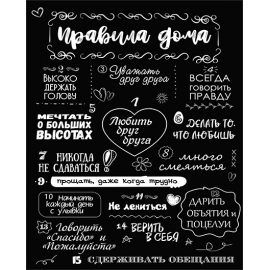 Правила дома
2
Высоко
держать
голову
3 Уважать
друг друга
4
ВСЕГДА
говорить
ПРАВДУ
1
Любить
друг
друга
5
МЕЧТАТЬ
О БОЛЬШИХ
ВЫСОТАХ
6 ДЕЛАТЬ ТО,
ЧТО ЛЮБИШЬ
7 НИКОГДА
НЕ СДАВАТЬСЯ!
8 много
смеяться
9 прощать, даже когда трудно
10 Начинать
каждый день
с улыбки
11
Не лениться
12
ДАРИТЬ
ОБЪЯТИЯ и
ПОЦЕЛУИ
13 Говорить
«Спасибо» и
«Пожалуйста»
14 ВЕРИТЬ
В СЕБЯ
15 СДЕРЖИВАТЬ ОБЕЩАНИЯ